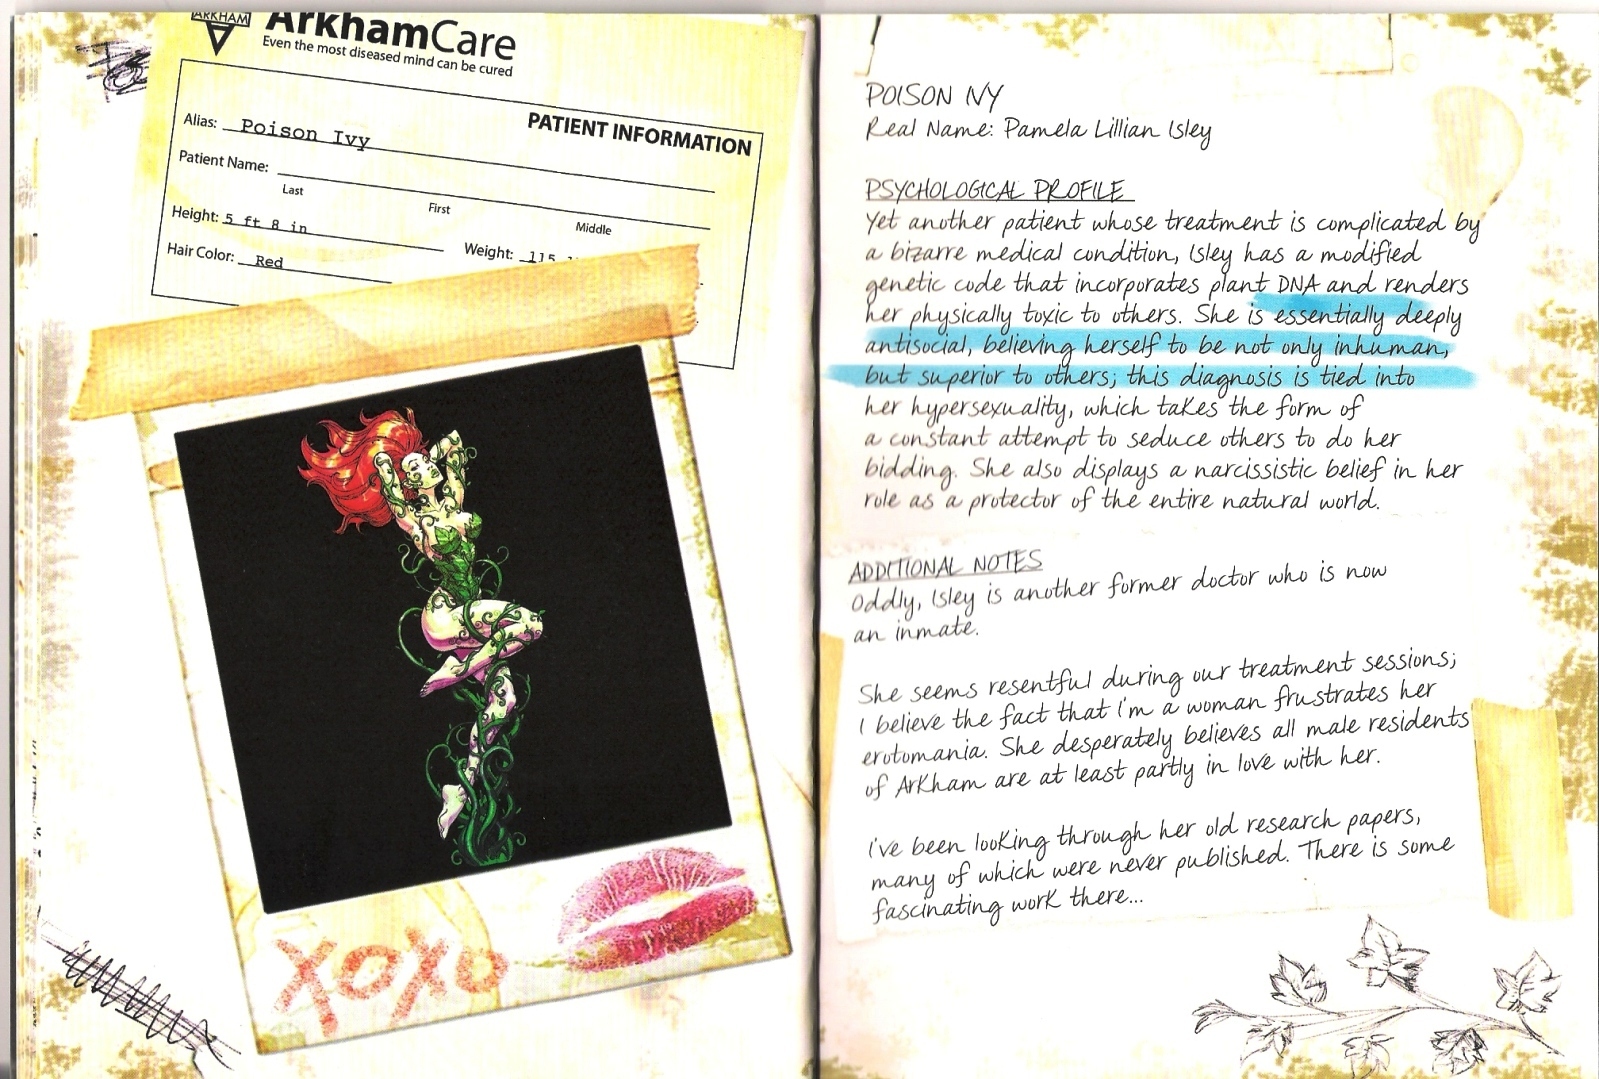 ARKHAM
ArkhamCare
Even the most diseased mind can be cured
PATIENT INFORMATION
Alias: Poison Ivy
Patient Name:
Last First Middle
Height: 5 ft 8 in Weight: 115
Hair Color: Red
XOXO
POISON IVY
Real Name: Pamela Lillian Isley
PSYCHOLOGICAL PROFILE
Yet another patient whose treatment is complicated by
a bizarre medical condition, Isley has a modified
genetic code that incorporates plant DNA and renders
her physically toxic to others. She is essentially deeply
antisocial, believing herself to be not only inhuman,
but superior to others; this diagnosis is tied into
her hypersexuality, which takes the form of
a constant attempt to seduce others to do her
bidding. She also displays a narcissistic belief in her
role as a protector of the entire natural world.
ADDITIONAL NOTES
Oddly, Isley is another former doctor who is now
an inmate.
She seems resentful during our treatment sessions;
I believe the fact that I'm a woman frustrates her
erotomania. She desperately believes all male residents
of Arkham are at least partly in love with her.
I've been looking through her old research papers,
many of which were never published. There is some
fascinating work there...